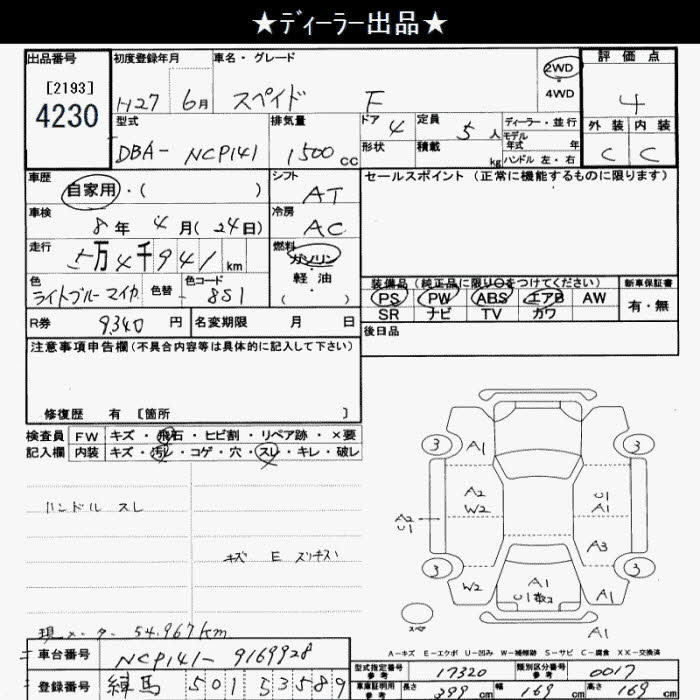 ★ディーラー出品★
出品番号 初度登録年月 車名・グレード 評価点
[2193]
4230
H27 6月 スペイド F
2WD
・
4WD
4
型式 排気量 ドア 4 定員 5人 ディーラー・並行
モデル年式 年
外装 内装
DBA- NCP141 1500cc 形状 積載 kg ハンドル 左・右
C C
車歴 自家用・( ) シフト AT セールスポイント(正常に機能するものに限ります)
車検 8年 4月(24日) 冷房 AC
走行 5万4千941km 燃料 ガソリン・軽油( )
色 ライトブルーマイカ 色替 - 色コード 8S1
装備品(純正品に限り○をつけてください) 新車保証書
PS PW ABS エアB AW 有・無
SR ナビ TV カワ
R券 9340円 名変期限 月 日 後日品
注意事項申告欄(不具合内容等は具体的に記入して下さい)
修復歴 有 [箇所 ]
検査員 FW キズ・飛石・ヒビ割・リペア跡・×要
記入欄 内装 キズ・汚レ・コゲ・穴・スレ・キレ・破レ
ハンドル スレ
キズ E
現メーター 54.967km
3 A1 3
A2
W2
U1
A1
A2
U1
A3
3 W2 A1 3
U1
A1
A1
A-キズ E-エクボ U-凹み W-補修跡 S-サビ C-腐食 XX-交換済
車台番号 NCP141-9169928
登録番号 練馬 501 53589
型式指定番号 参考 17320 類別区分番号 参考 0017
車庫証明用 参考 長さ 399cm 幅 169cm 高さ 169cm